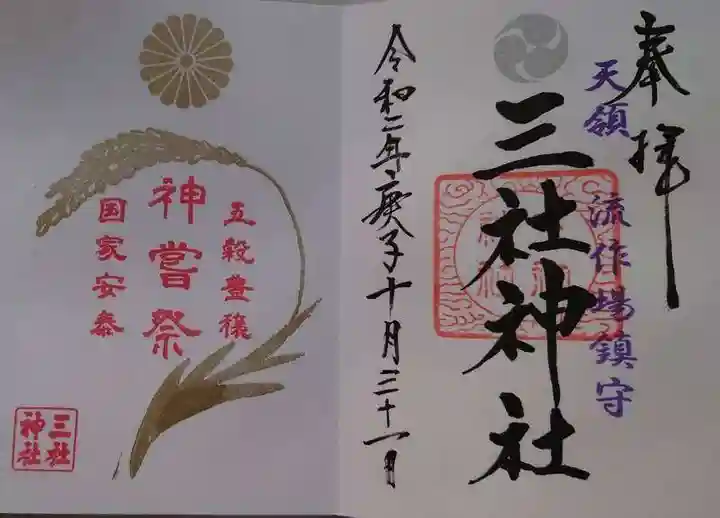 奉拝
天領 流作場鎮守
三社神社
令和二年庚子十月三十一日
五穀豊穣
神嘗祭
国家安泰
三社
神社